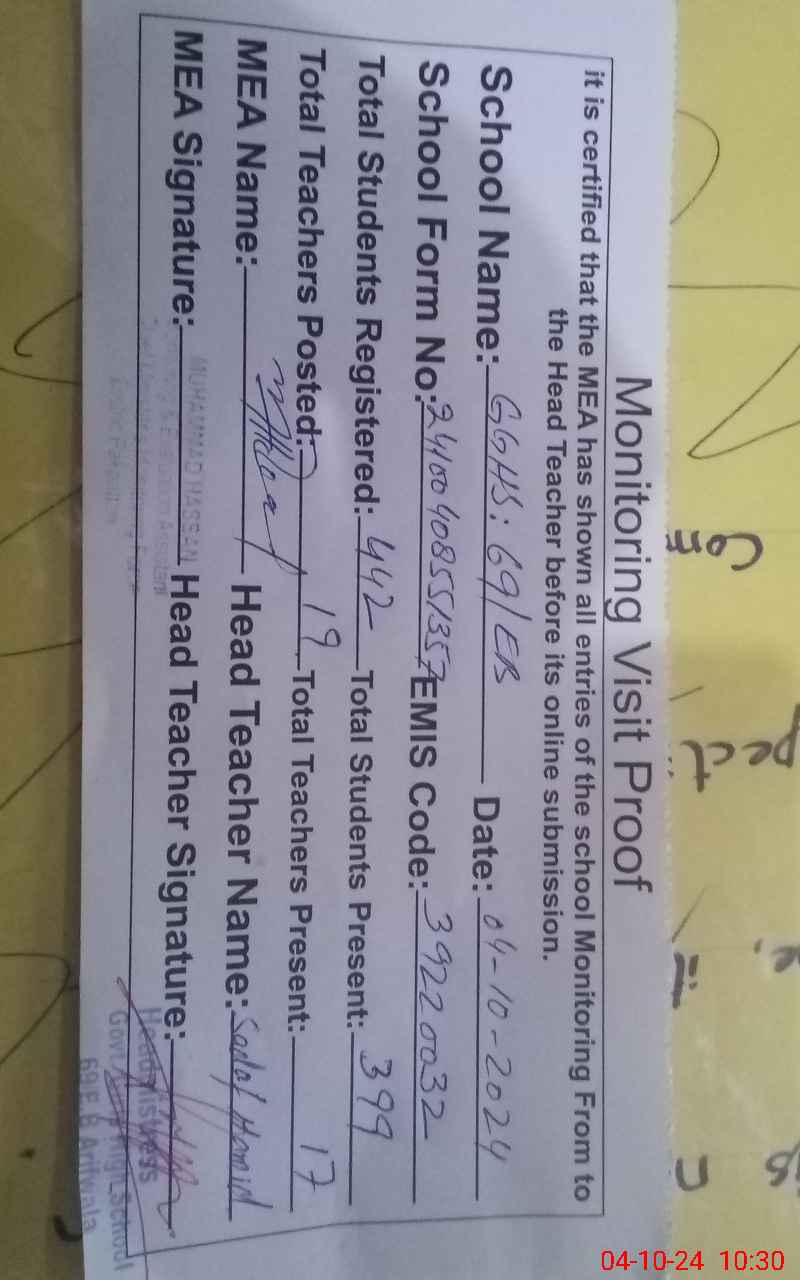 Monitoring Visit Proof
it is certified that the MEA has shown all entries of the school Monitoring From to
the Head Teacher before its online submission.
School Name: GGHS: 69/EB Date: 04-10-2024
School Form No: 24100408551357 EMIS Code: 39220032
Total Students Registered: 442 Total Students Present: 399
Total Teachers Posted: 19 Total Teachers Present: 17
MEA Name: Head Teacher Name: Sadaf Hamid
MEA Signature: Head Teacher Signature:
MUHAMMAD HASSAN
Headmistress
Govt. High School
69/E.B Arifwala
04-10-24 10:30